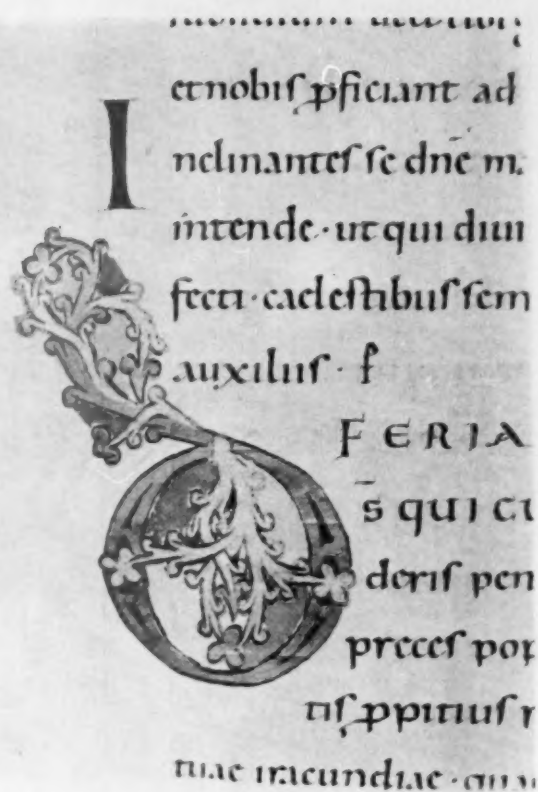 et nobiſ ꝓficiant ad
Inclinanteſ ſe dñe
intende · ut qui diui
fecti · caeleſtibuſ ſem
auxiliiſ · f
FERIA
Ds̄ QUI
deriſ pen
preceſ pop
tiſ ꝓpitiuſ
tuae iracundiae ·